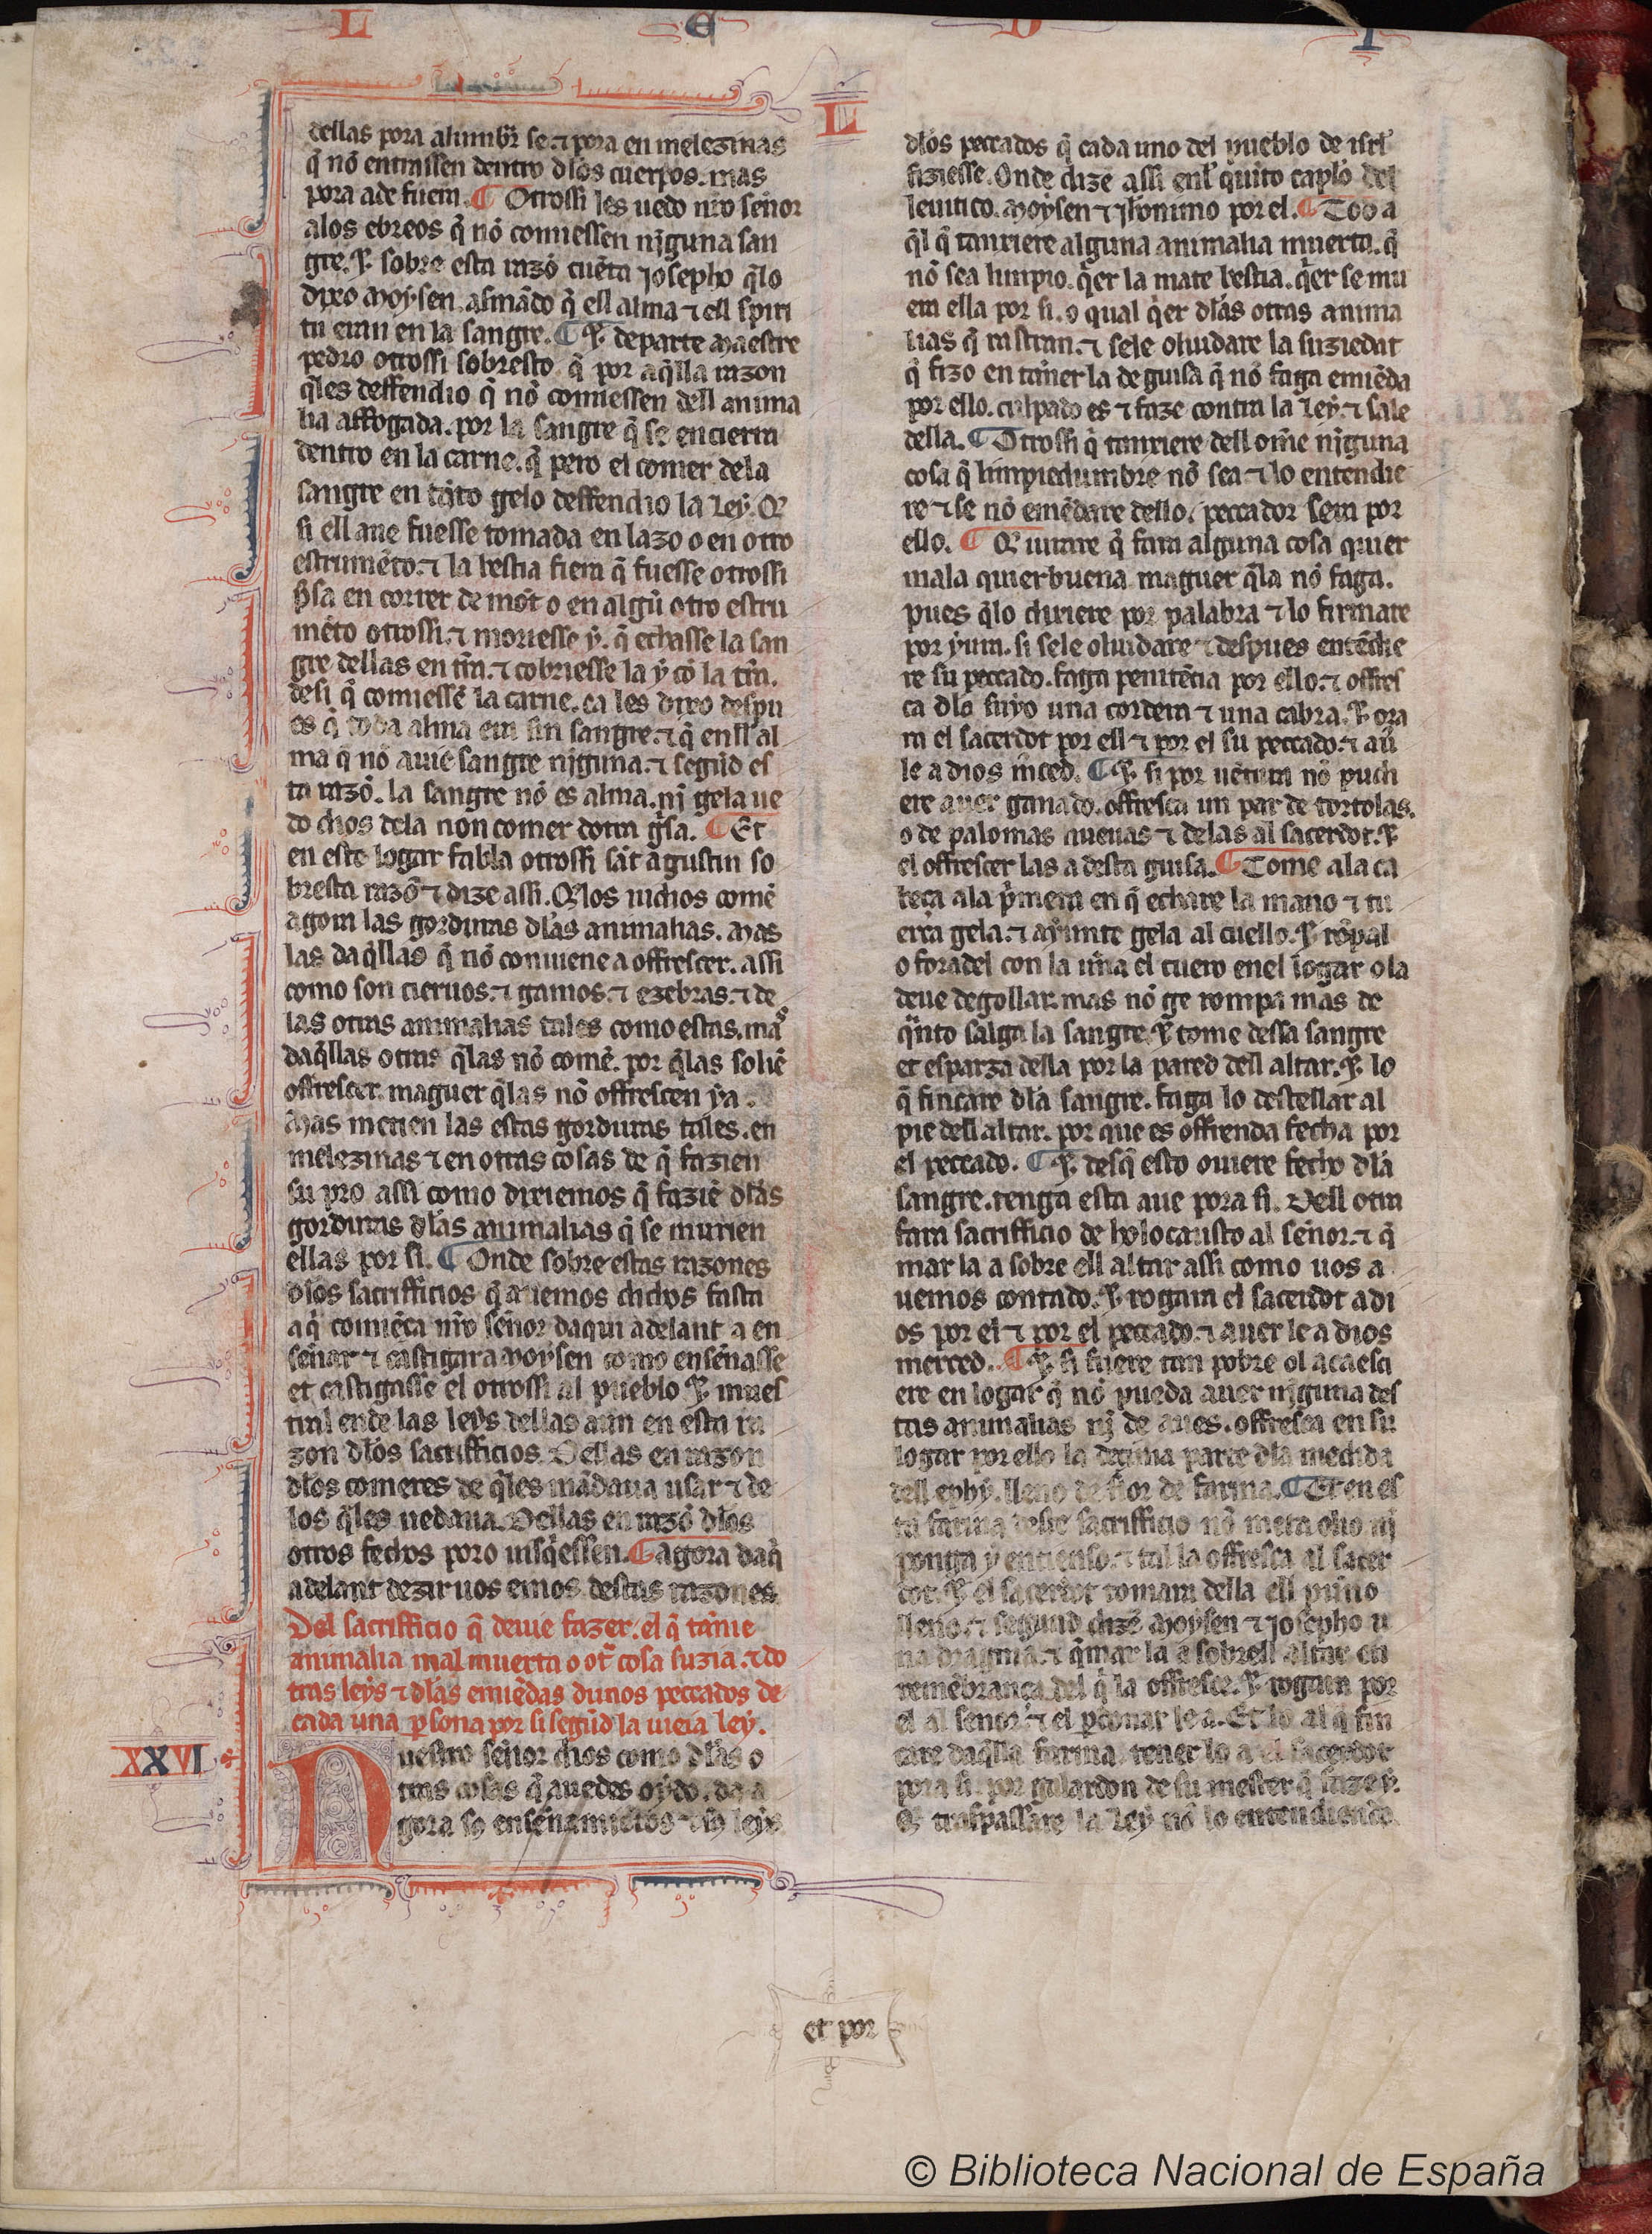 L E U I
L
dellas pora alumbrar se. ⁊ pora en melezinas
q̃ nõ entrassen dentro dlos cuerpos. mas
pora a de fuera. ¶ Otrossi les uedo nr̃o señor
alos ebreos q̃ nõ comiessen njguna san
gre. ⁊ sobre esta razõ cuẽta josepho q̃lo
dixo moysen. asmãdo q̃ ell alma ⁊ ell spiri
tu eran en la sangre. ¶ ⁊ departe maestre
pedro otrossi sobresto. q̃ por aq̃lla razon
q̃les deffendio q̃ nõ comiessen dell anima
lia affogada. por la sangre q̃ se encierra
dentro en la carne. q̃ pero el comer dela
sangre en tãto gelo deffendio la Ley. Q̃
si ell aue fuesse tomada en lazo o en otro
estrumẽto. ⁊ la bestia fiera q̃ fuesse otrossi
p̃sa en correr de mõt o en algũ otro estru
mẽto otrossi. ⁊ moriesse ẏ. q̃ echasse la san
gre dellas en tr̃ra. ⁊ cobriesse la ẏ cõ la tr̃ra.
desi q̃ comiessẽ la carne. ca les dixo despu
es q̃ toda alma era sin sangre. ⁊ q̃ enll al
ma q̃ nõ auie sangre njguna. ⁊ segũd es
ta razõ. la sangre nõ es alma. nj gela ue
do dios dela non comer dotra g̃sa. ¶ Et
en este logar fabla otrossi sãt agustin so
bresta razõ ⁊ dize assi. Q̃ los iudios comẽ
agora las gorduras dlas animalias. mas
las daq̃llas q̃ nõ conuiene a offrescer. assi
como son cieruos. ⁊ gamos. ⁊ ezebras. ⁊ de
las otras animalias tales como estas. mas
daq̃llas otras q̃las nõ comẽ. por q̃las soliẽ
offrescer. maguer q̃las nõ offrescen ya.
Mas metien las estas gorduras tales. en
melezinas ⁊ en otras cosas de q̃ fazien
su pro assi como dixiemos q̃ faziẽ dlas
gorduras dlas animalias q̃ se murien
ellas por si. ¶ Onde sobre estas razones
dlos sacrifficios q̃ auemos dichos fasta
aq̃ comiẽça nr̃o señor daqui adelant a en
señar ⁊ castigar a moysen como enseñasse
et castigasse el otrossi al pueblo. ⁊ mues
tral ende las leẏs dellas aun en esta ra
zon dlos sacrifficios. Dellas en razon
dlos comeres de q̃les mãdaua usar ⁊ de
los q̃les uedaua. Dellas en razõ dlos
otros fechos poro uisq̃essen. ¶ agora daq̃
adelant dezir uos emos destas razones
Del sacrifficio q̃ deue fazer. el q̃ tãnie
animalia mal muerta o ot̃ cosa suzia. ⁊ do
tras leẏs ⁊ dlas emiẽdas dunos peccados de
cada una p̃sona por si segũd la uieia leẏ.
XXVI
Nuestro señor dios como dlas o
tras cosas q̃ auedes oẏdo. da a
gora so enseñamiẽtos ⁊ su leẏs
dlos peccados q̃ cada uno del pueblo de isrl̃
fiziesse. Onde dize assi enl quĩto caplo del
leuitico. moysen ⁊ jheronimo por el. ¶ Tod a
q̃l q̃ tanxiere alguna animalia muerta. q̃
nõ sea limpio. q̃er la mate bestia. q̃er se mu
era ella por si. o qual q̃er dlas otras anima
lias q̃ rastran. ⁊ sele oluidare la suziedat
q̃ fizo en tãner la de guisa q̃ nõ faga emiẽda
por ello. culpado es ⁊ faze contra la Leẏ. ⁊ sale
della. ¶ Otrossi q̃ tanxiere dell om̃e njguna
cosa q̃ limpiedumbre nõ sea ⁊ lo entendie
re ⁊ se nõ emẽdare dello. peccador sera por
ello. ¶ Q̃ iurare q̃ fara alguna cosa quier
mala quier buena maguer q̃la nõ faga.
pues q̃lo dixiere por palabra ⁊ lo firmare
por ẏura. si sele oluidare ⁊ despues entẽdie
re su peccado. faga penitẽtia por ello. ⁊ offres
ca dlo suyo una cordera ⁊ una cabra. ⁊ ora
ra el sacerdot por ell ⁊ por el su peccado. ⁊ aur̃
le a dios m̃ced. ¶ ⁊ si por uẽtura nõ pudi
ere auer ganado. offresca un par de tortolas.
o de palomas nueuas ⁊ delas al sacerdot. ⁊
el offrescer las a desta guisa. ¶ Tome ala ca
beça ala p̃mera en q̃ echare la mano ⁊ tu
erça gela. ⁊ aẏunte gela al cuello. ⁊ rõpal
o foradel con la uña el cuero enel logar o la
deue degollar. mas nõ ge rompa mas de
q̃nto salga la sangre. ⁊ tome dessa sangre
et esparza della por la pared dell altar. ⁊ lo
q̃ fincare dla sangre. faga lo destellar al
pie dell altar. por que es offrenda fecha por
el peccado. ¶ ⁊ desq̃ esto ouiere fecho dla
sangre. tenga esta aue pora si. Dell otra
fara sacrifficio de holocausto al señor. ⁊ q̃
mar la a sobre ell altar assi como uos a
uemos contado. ⁊ rogara el sacerdot a di
os por el ⁊ por el peccado. ⁊ auer le a dios
merced. ¶ ⁊ si fuere tan pobre ol acaesci
ere en logar q̃ nõ pueda auer njguna des
tas animalias nj de aues. offresca en su
logar por ello la dezima parte dla medida
dell ephẏ. lleno de flor de farina. ¶ Et en es
ta farina deste sacrifficio nõ meta olio nj
ponga ẏ encienso. ⁊ tal la offresca al sacer
dot. ⁊ el sacerdot tomara della ell puño
lleno. ⁊ segund dizẽ moysen ⁊ josepho u
na dragma. ⁊ q̃mar la a sobrell altar en
remẽbrança del q̃ la offresce. ⁊ rogara por
el al señor. ⁊ el p̃donar le a. Et lo al q̃ fin
care daq̃lla farina. tener lo a el sacerdot
pora si. por gualardon de su mester q̃ faze ẏ.
Q̃ traspassare la Leẏ nõ lo entendiendo
et por
© Biblioteca Nacional de España